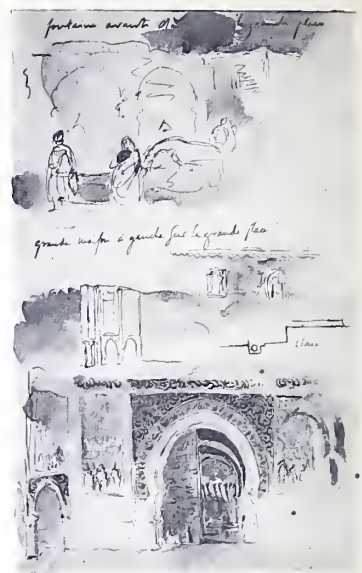 fontaine avant la grande place
grande maison à gauche sur la grande place
place